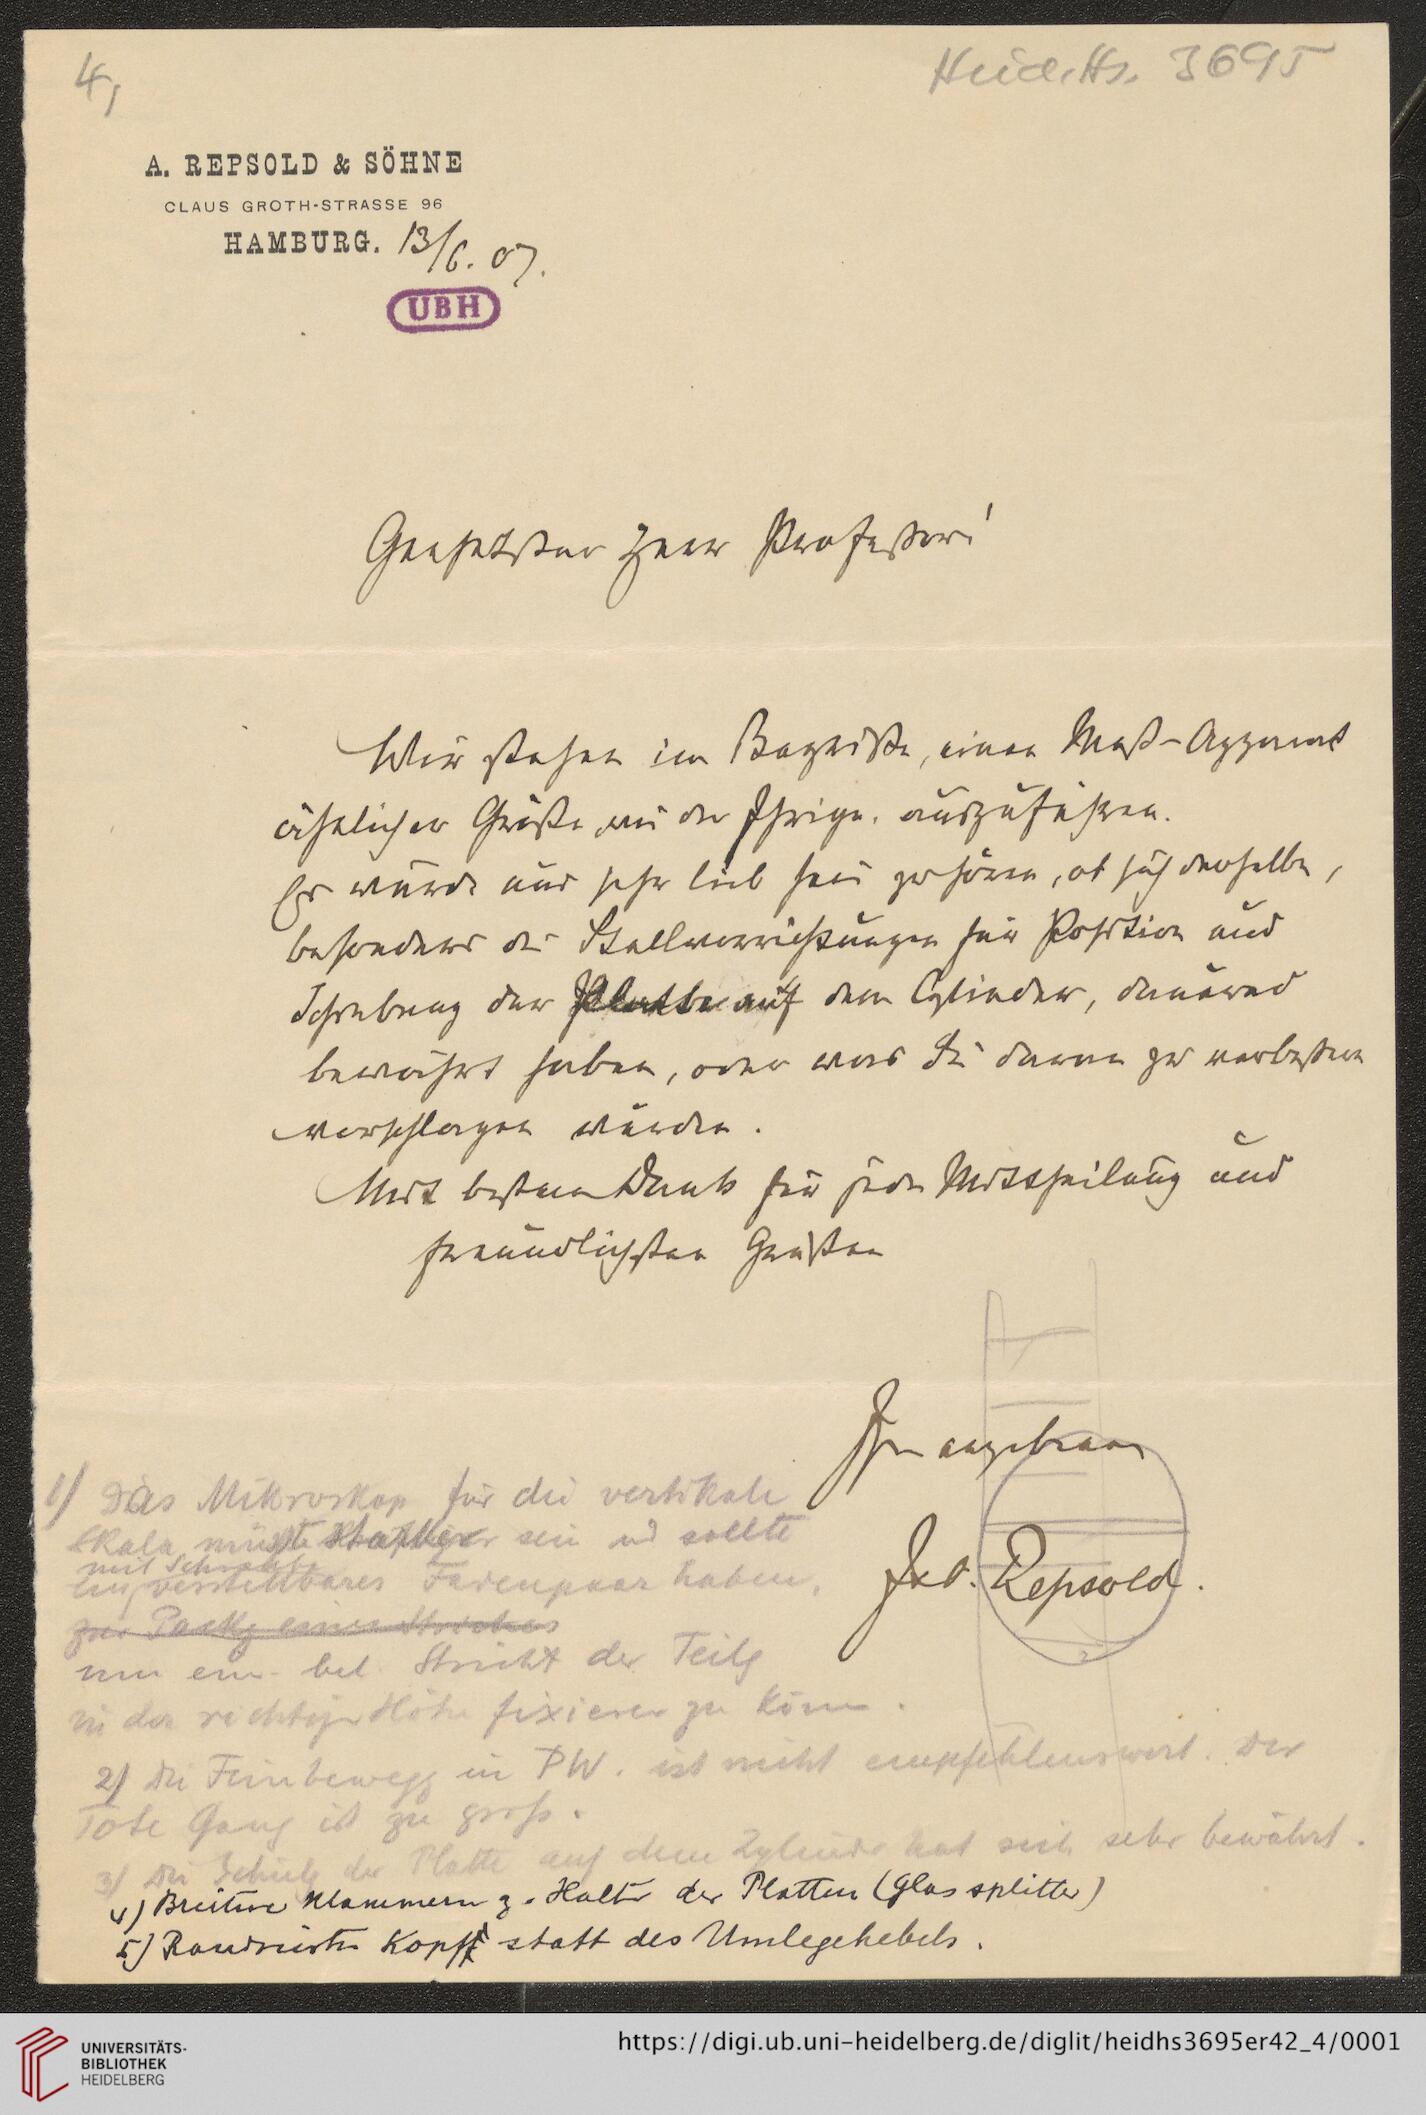 4,
Heid. Hs. 3695
A. REPSOLD & SÖHNE
CLAUS GROTH-STRASSE 96
HAMBURG. 13/6. 07.
UBH
Geehrtester Herr Professor!
Wir stehen im Begriffe, einen Meß-Apparat
ähnlicher Größe wie der Ihrige. auszuführen.
Es würde uns sehr lieb sein zu hören, ob sich derselbe,
besonders die Stellvorrichtungen für Position und
Schiebung der Platte auf dem Cylinder, dauernd
bewährt haben, oder was Sie daran zu verbessern
vorschlagen würden.
Mit bestem Dank für jede Mittheilung und
freundlichsten Grüßen
Ihr ergebener
Joh. Repsold.
1) Das Mikroskop für die vertikale
Skala müsste stärker sein und sollte
mit Schraube
verstellbares Fadenpaar haben,
zur eines Striches
um ein bel. Strich der Teilg
in der richtigen Höhe fixieren zu können.
2) Die Feinbewegg in PW. ist nicht empfehlenswert. Der
Tote Gang ist zu gross.
3) Die Schiebg der Platte auf dem Zylinder hat sich sehr bewährt.
4) Breitere Klammern z. Halten der Platten (Glassplitter)
5) Kopf statt des Umlegehebels.
UNIVERSITÄTS-
BIBLIOTHEK
HEIDELBERG
https://digi.ub.uni-heidelberg.de/diglit/heidhs3695er42_4/0001